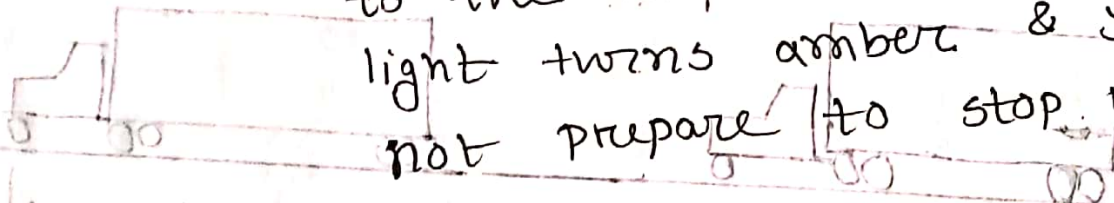 to the
light turns amber &
not prepare to stop.